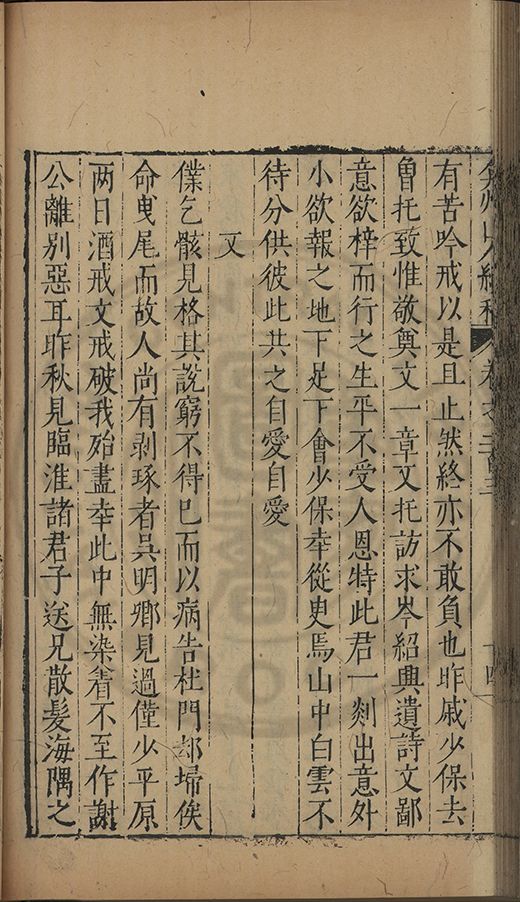 弇州山人續稿 卷之二百三 十四
有苦吟戒以是且止然終亦不敢負也昨戚少保去
曾托致惟敬奠文一章又托訪求岑紹興遺詩文鄙
意欲梓而行之生平不受人恩特此君一剡出意外
小欲報之地下足下會少保幸從臾焉山中白雲不
待分供彼此共之自愛自愛
又
僕乞骸見格其説窮不得已而以病告杜門却埽俟
命曵尾而故人尚有剥琢者吳明卿見過僅少平原
两日酒戒文戒破我殆盡幸此中無染着不至作謝
公離別惡耳昨秋見臨淮諸君子送兄散髮海隅之